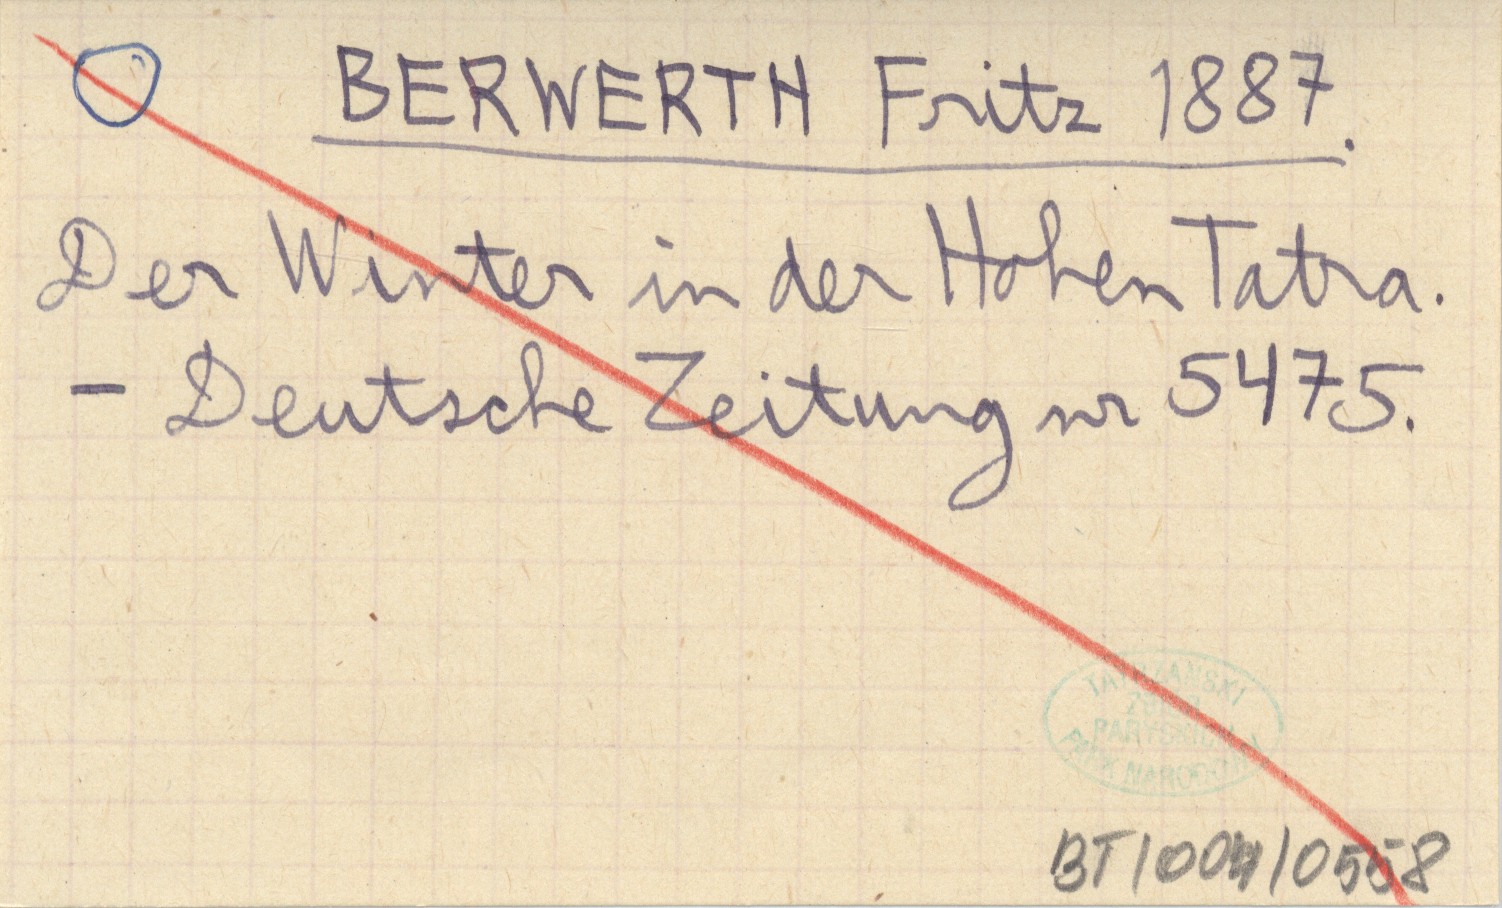 BERWERTH Fritz 1887.
Der Winter in der Hohen Tatra.
- Deutsche Zeitung nr 5475.
TATRZAŃSKI
PARK NARODOWY
BT/004/0558